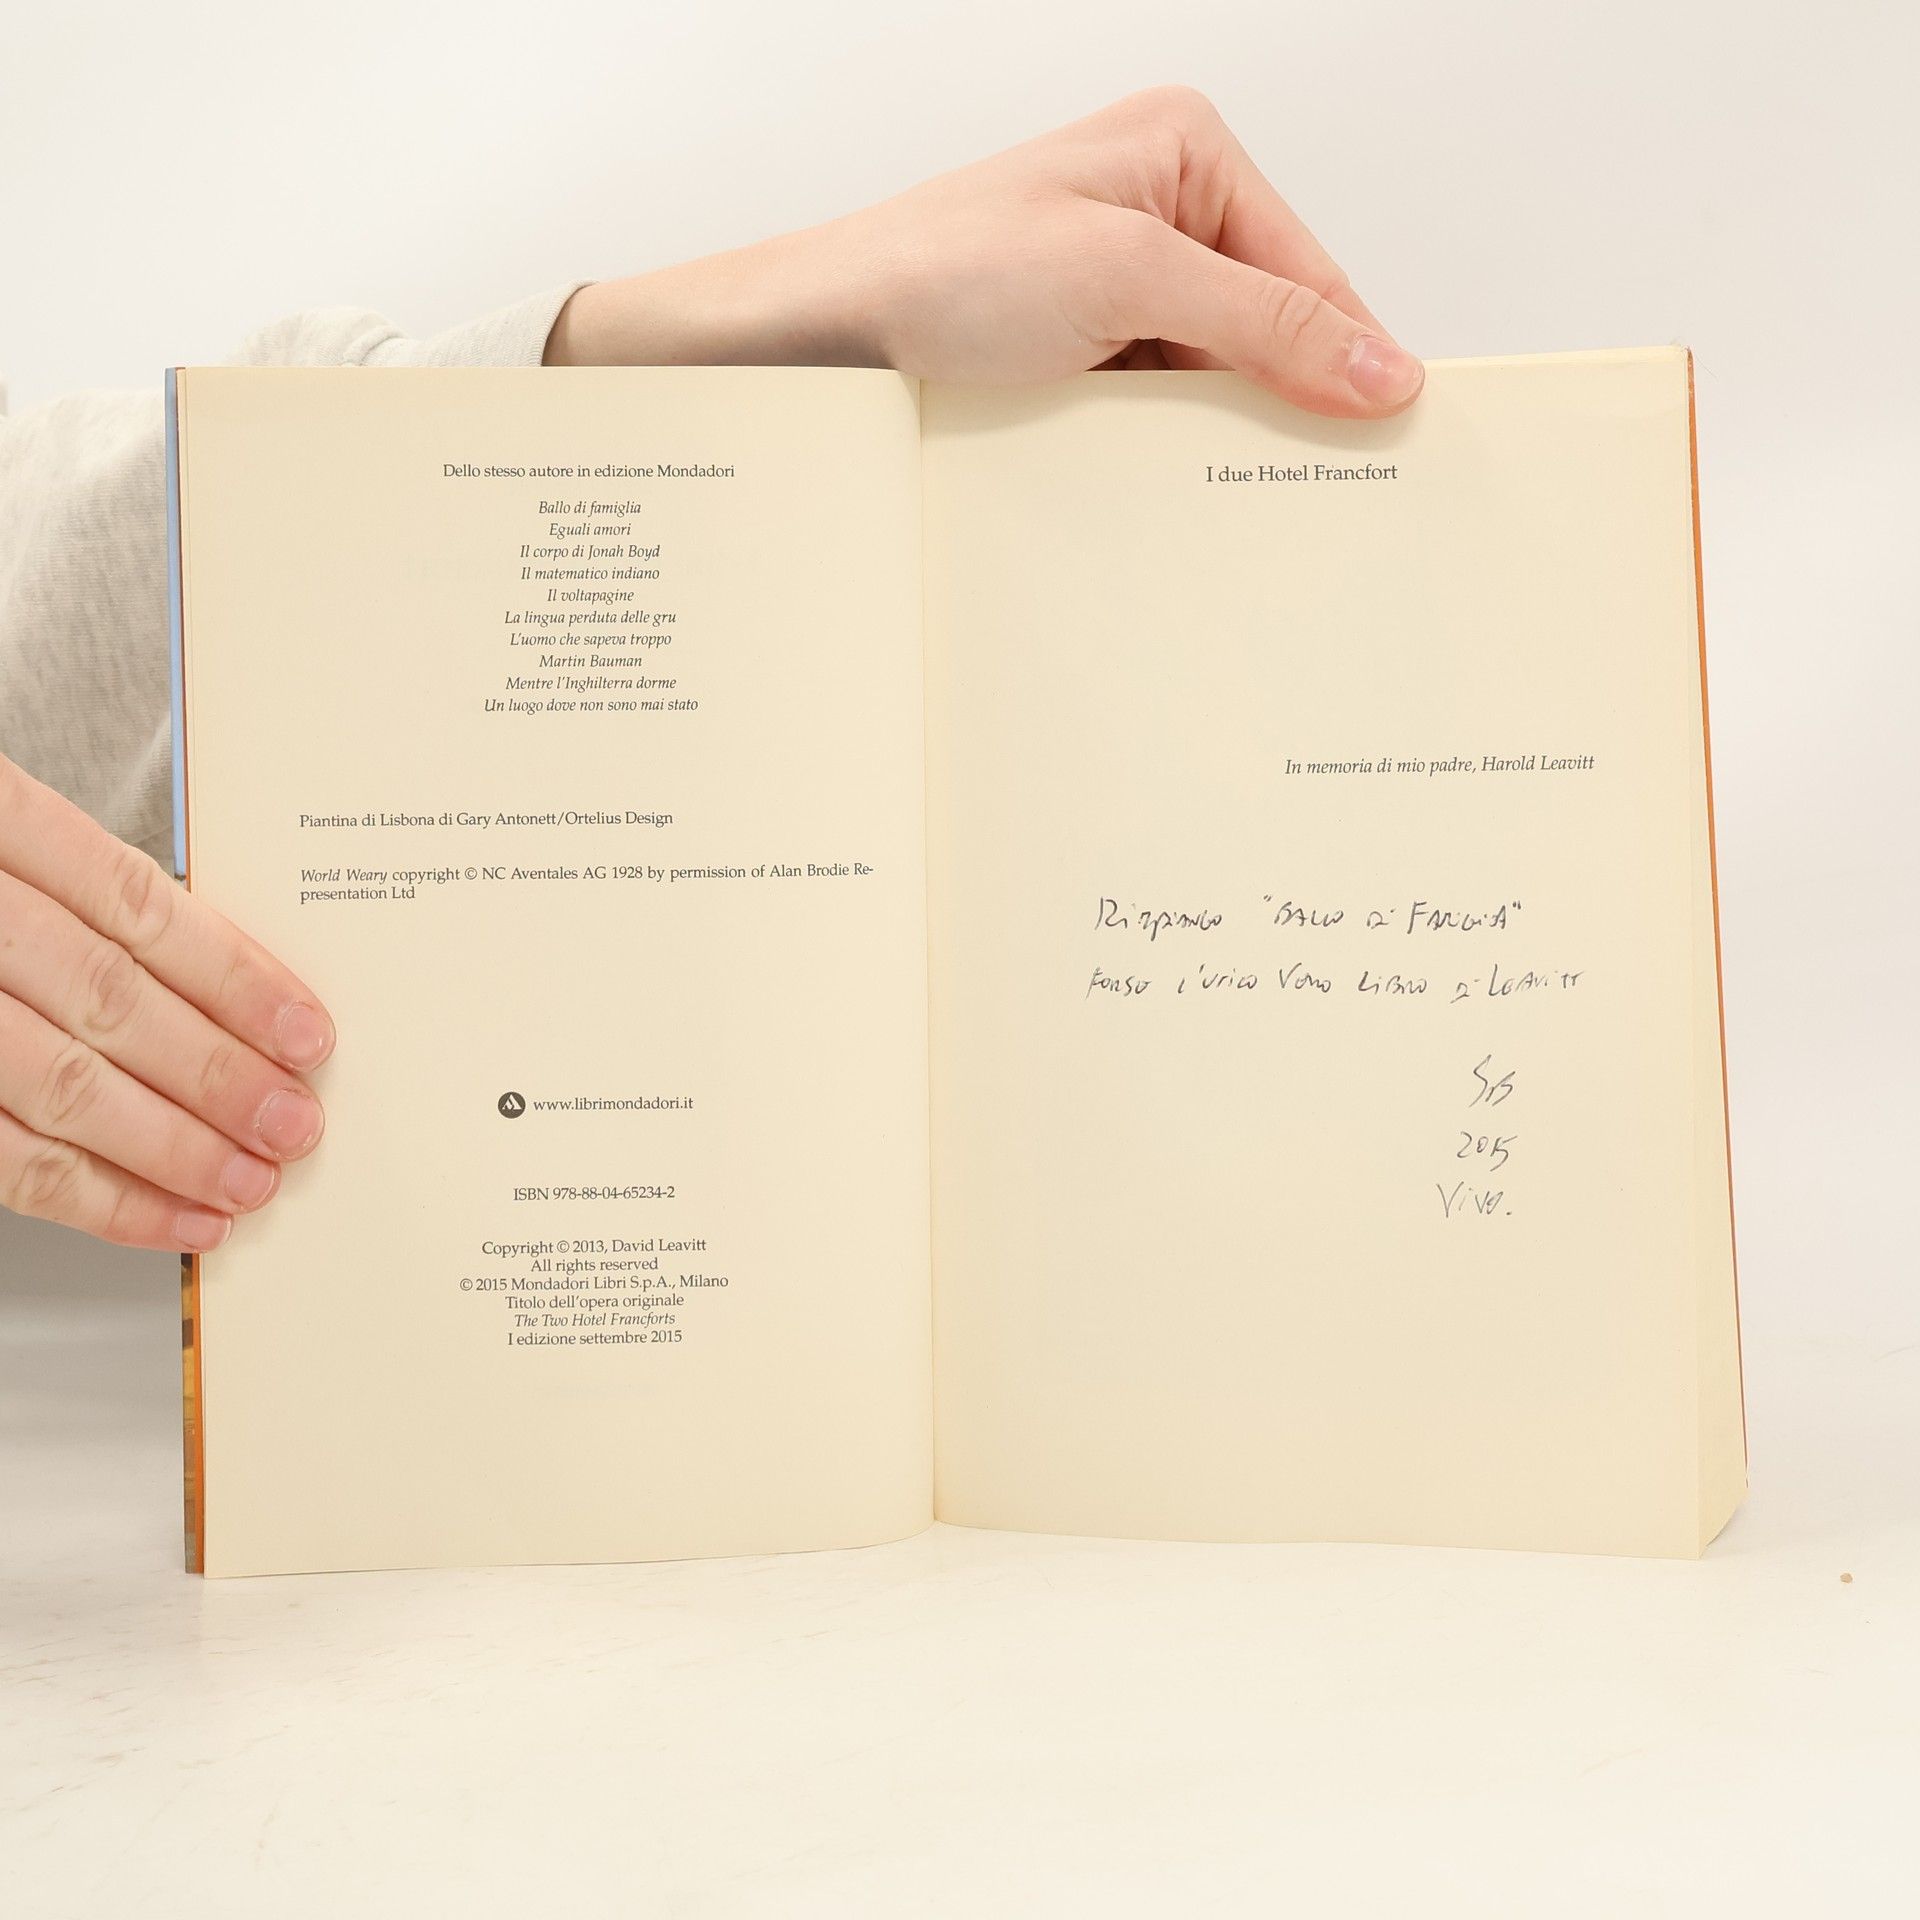 Dello stesso autore in edizione Mondadori
Ballo di famiglia
Eguali amori
Il corpo di Jonah Boyd
Il matematico indiano
Il voltapagine
La lingua perduta delle gru
L'uomo che sapeva troppo
Martin Bauman
Mentre l'Inghilterra dorme
Un luogo dove non sono mai stato
Piantina di Lisbona di Gary Antonett/Ortelius Design
World Weary copyright © NC Aventales AG 1928 by permission of Alan Brodie Re-
presentation Ltd
www.librimondadori.it
ISBN 978-88-04-65234-2
Copyright © 2013, David Leavitt
All rights reserved
© 2015 Mondadori Libri S.p.A., Milano
Titolo dell'opera originale
The Two Hotel Francforts
I edizione settembre 2015
I due Hotel Francfort
In memoria di mio padre, Harold Leavitt
"BALLO DI FAMIGLIA"
FORSE L'UNICO VERO LIBRO DI LEAVITT
2015